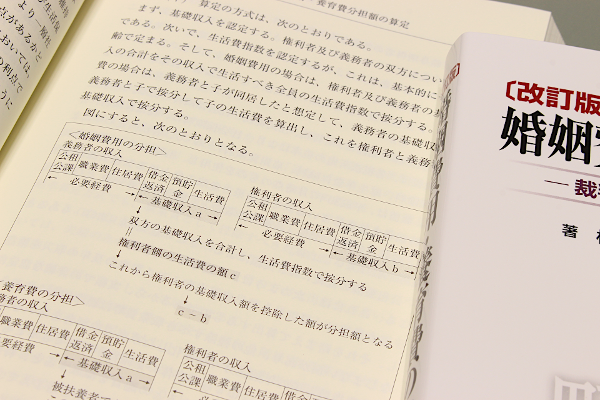 養育費分担額の算定
算定の方式は、次のとおりである。
まず、基礎収入を認定する。権利者及び義務者の双方につい
る。次いで、生活費指数を認定するが、これは、基本的に
齢で定まる。そして、婚姻費用の場合は、権利者及び義務者の基
入の合計をその収入で生活すべき全員の生活費指数で按分する。
費の場合は、義務者と子が同居したと想定して、義務者の基礎収
義務者と子で按分して子の生活費を算出し、これを権利者と義務
基礎収入で按分する。
図にすると、次のとおりとなる。
〈婚姻費用の分担〉
義務者の収入
公租公課 職業費 住居費 借金返済 預貯金 生活費
←必要経費→ ←基礎収入a→
権利者の収入
公租公課 職業費 住居費 借金返済 預貯金 生活費
←必要経費→ ←基礎収入b→
双方の基礎収入を合計し、生活費指数で按分する
‖
権利者側の生活費の額c
これから権利者の基礎収入額を控除した額が分担額となる
↓
c－b
養育費の分担〉
務者の収入
職業費 住居費 借金返済 預貯金 生活費
要経費→ ←基礎収入a→
権利者の収入
公租公課 職業費 住居費 借金返済 預貯
被扶養者で
点があるかと
より一括性
おいては、
の利点で
ように
〔改訂版
婚姻
―裁
著